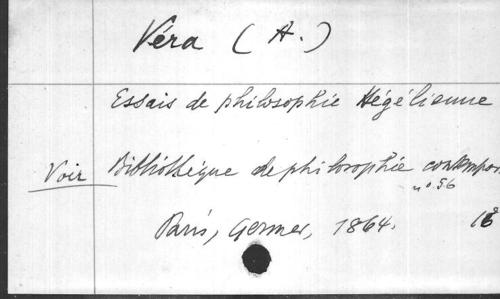 Véra (A.)
Essais de philosophie Hégélienne
Voir Bibliothèque de philosophie contempor
no. 56
Paris, Germer, 1864. 16°